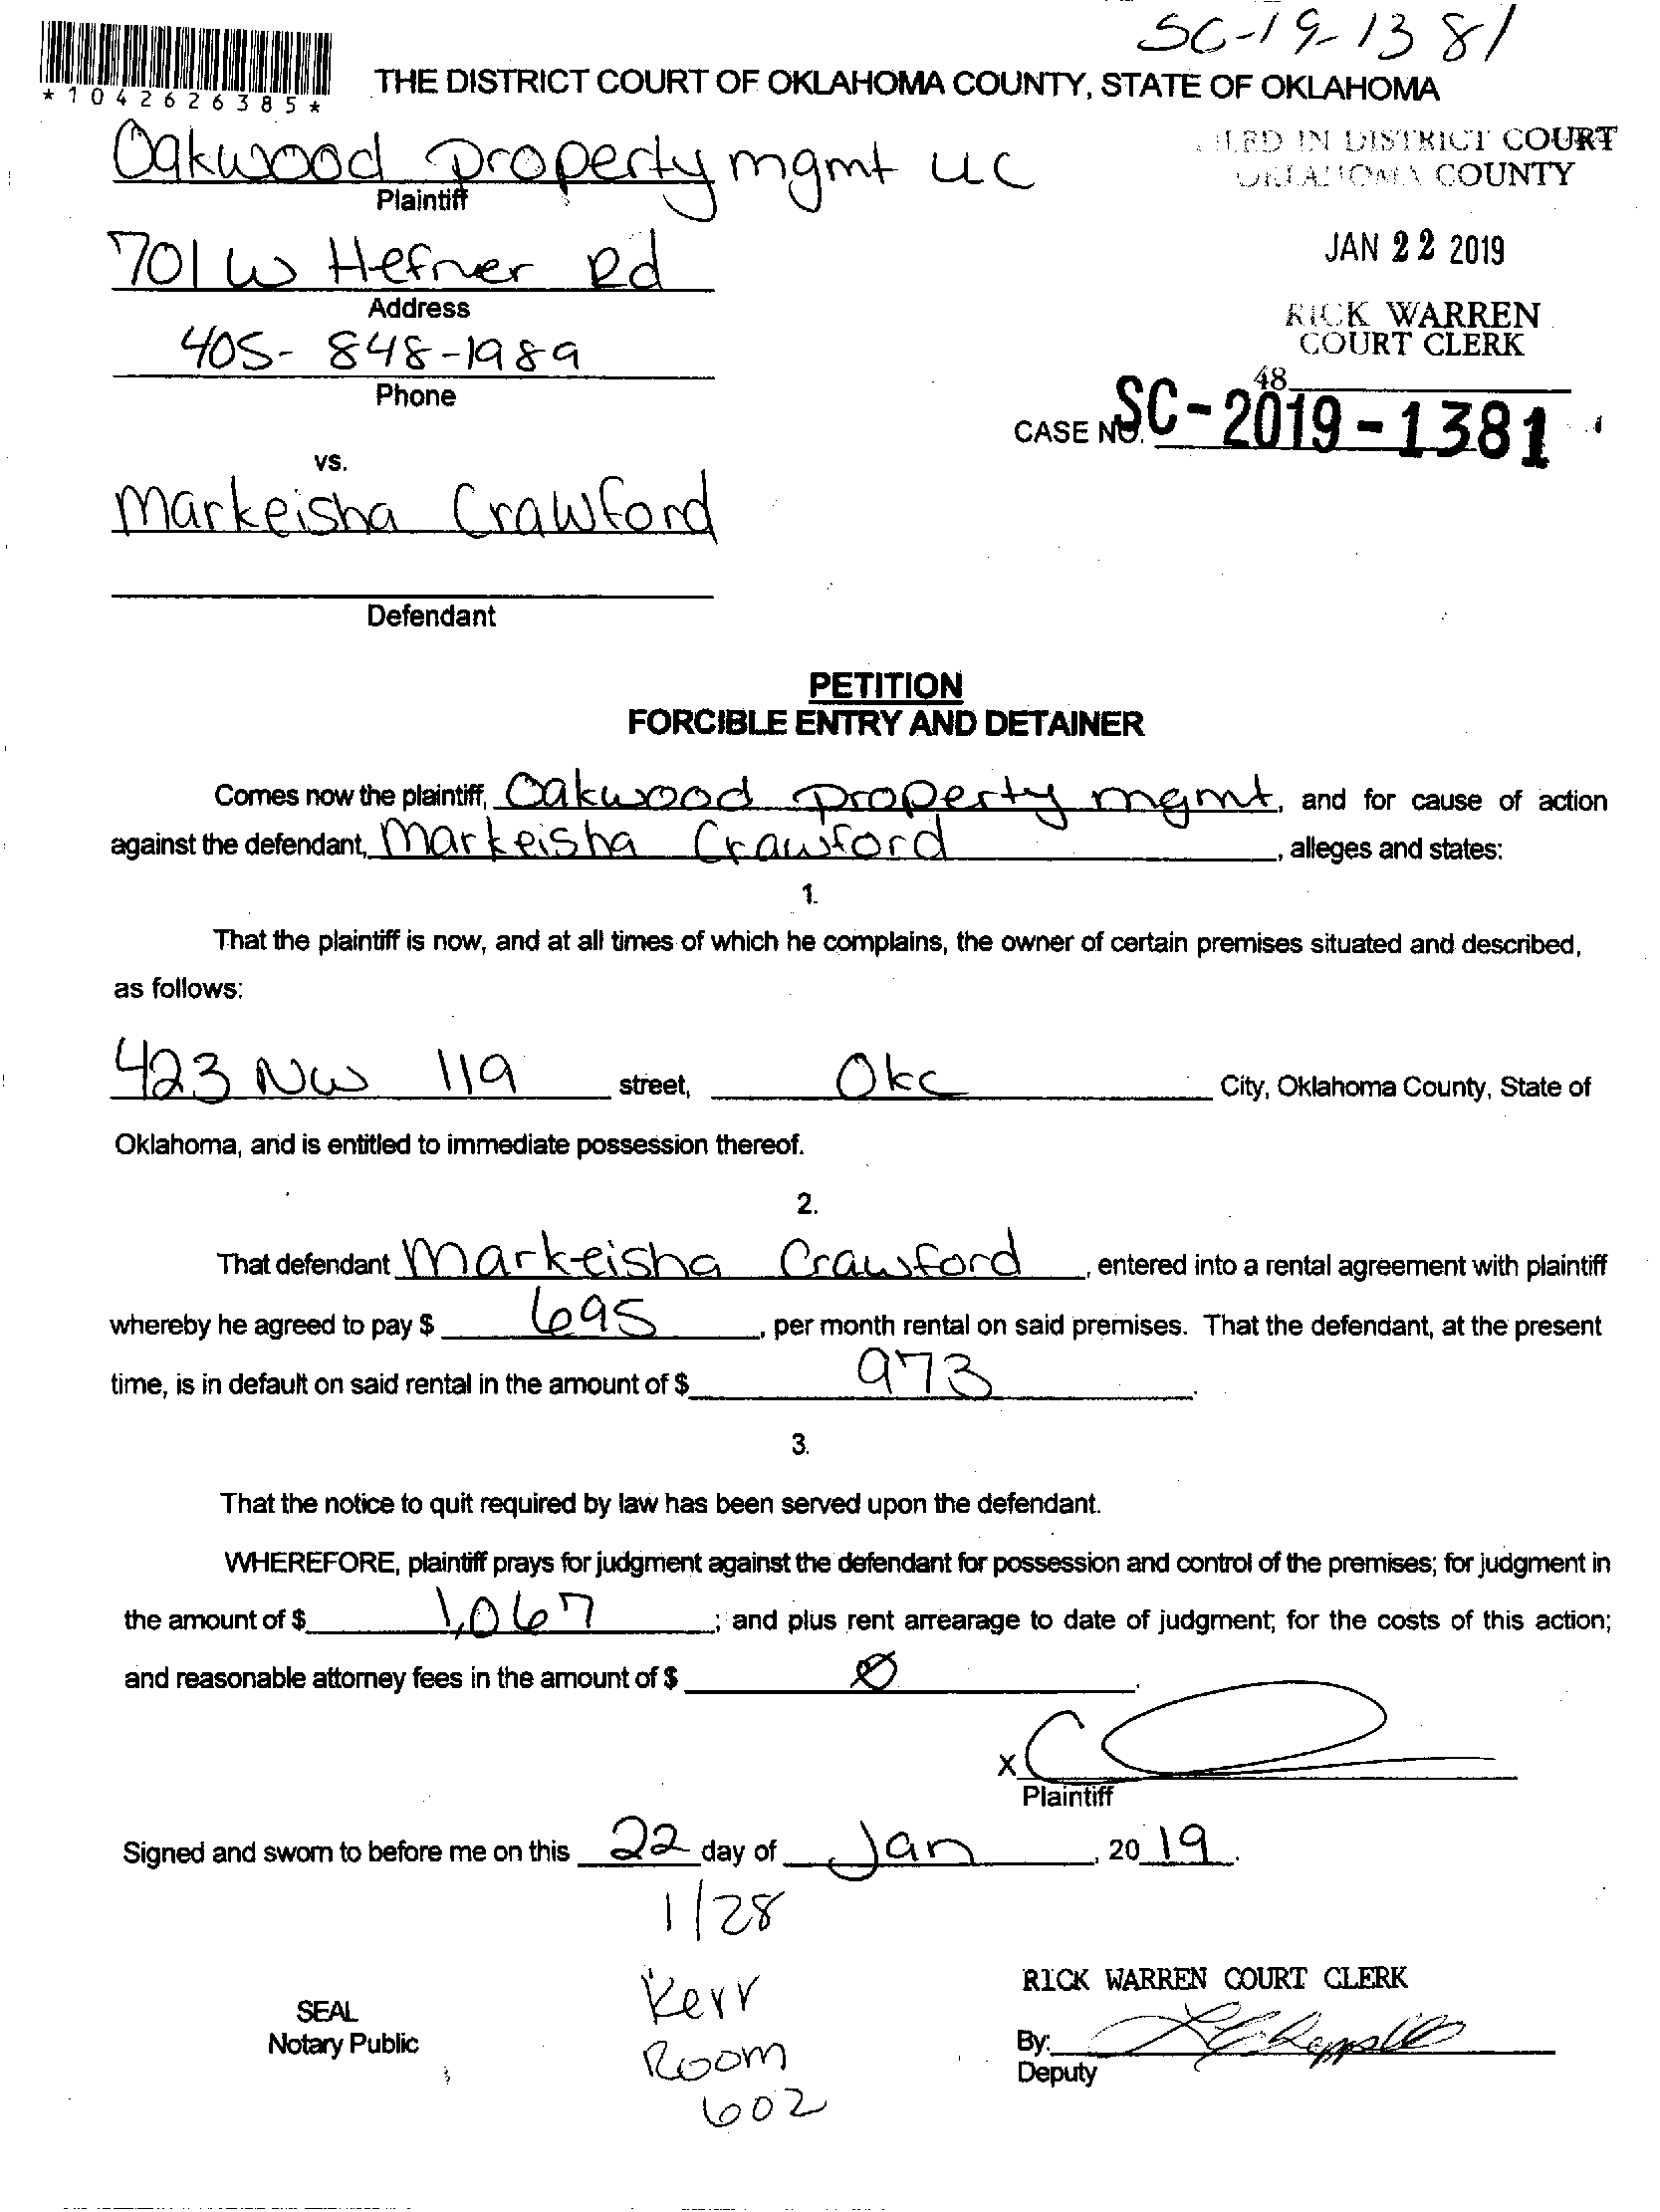 SC-19-1381
*1042626385*
THE DISTRICT COURT OF OKLAHOMA COUNTY, STATE OF OKLAHOMA
Oakwood property mgmt LLC
Plaintiff
FILED IN DISTRICT COURT
OKLAHOMA COUNTY
701 W Hefner Rd
Address
JAN 22 2019
405-848-1989
Phone
RICK WARREN
COURT CLERK
48
CASE NO. SC-2019-1381
vs.
Markeisha Crawford
Defendant
PETITION
FORCIBLE ENTRY AND DETAINER
Comes now the plaintiff, Oakwood property mgmt, and for cause of action
against the defendant, Markeisha Crawford, alleges and states:
1.
That the plaintiff is now, and at all times of which he complains, the owner of certain premises situated and described,
as follows:
423 NW 119 street, Okc City, Oklahoma County, State of
Oklahoma, and is entitled to immediate possession thereof.
2.
That defendant Markeisha Crawford, entered into a rental agreement with plaintiff
whereby he agreed to pay $ 695, per month rental on said premises. That the defendant, at the present
time, is in default on said rental in the amount of $ 973.
3.
That the notice to quit required by law has been served upon the defendant.
WHEREFORE, plaintiff prays for judgment against the defendant for possession and control of the premises; for judgment in
the amount of $ 1,067; and plus rent arrearage to date of judgment; for the costs of this action;
and reasonable attorney fees in the amount of $ 0.
x
Plaintiff
Signed and sworn to before me on this 22 day of Jan, 2019.
1/28
Kerr
Room
602
SEAL
Notary Public
RICK WARREN COURT CLERK
By:
Deputy